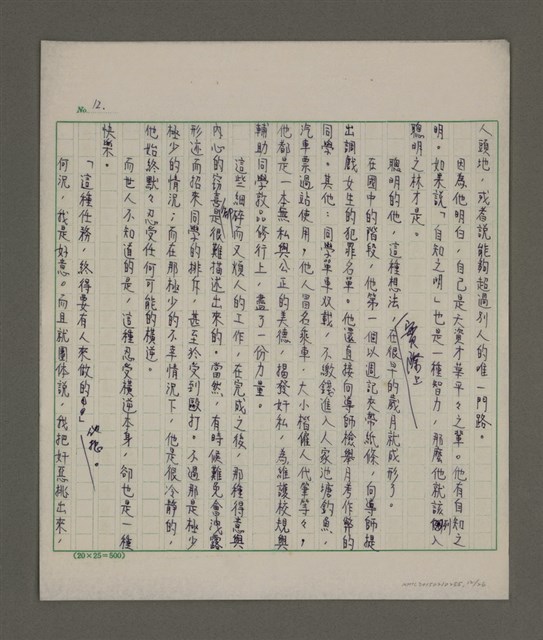 No. 12.
人頭地，或者說能夠超過別人的唯一門路。
因為他明白，自己是天資才華平々之輩。他有自知之
明。如果說「自知之明」也是一種智力，那麼他就該列入
聰明之林才是。
聰明的他，這種想法，實際上在很早的歲月就成形了。
在國中的階段，他第一個以週記夾帶紙條，向導師提
出調戲女生的犯罪名單。他還直接向導師檢舉月考作弊的
同學。其他：同學單車双載，不繳錢進入人家池塘釣魚，
汽車票過站使用，他人冒名乘車，大小楷催人代筆等々，
他都是一本無私與公正的美德，揭發奸私，為維護校規與
輔助同學敦品修行上，盡了一份力量。
這些細碎而又煩人的工作，在完成之後，那種得意與
內心的竊喜，卻是很難描述出來的。當然，有時候難免會洩露
形迹而招來同學的排斥，甚至於受到毆打。不過那是極少
極少的情況；而在那極少的不幸情況下，他是很冷靜的，
他始終默々忍受任何可能的橫逆。
而世人不知道的是，這種忍受橫逆本身，卻也是一種
快樂。
「這種任務，終得要有人來做的」他想。
何況，我是好意。而且就團体說，我把好惡挑出來，
(20×25=500)